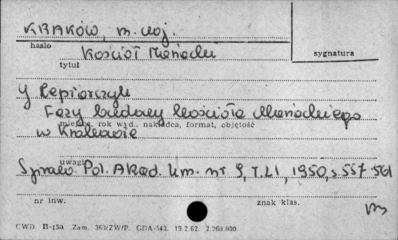 KRAKÓW, m. woj.
hasło
Kościół Mariacki
tytuł
sygnatura
J. Lepiarczyk
Fazy budowy Kościoła Mariackiego
miejsce, rok wyd., nakładca, format, objętość
w Krakowie
uwagi
Spraw. Pol. Akad. Um. nr 9, T. LI, 1950, s. 557-561
nr inw.
znak klas.
CWD B-15a Zam. 363/ZW/P. GDA-543. 19.2.62. 2.260.000.